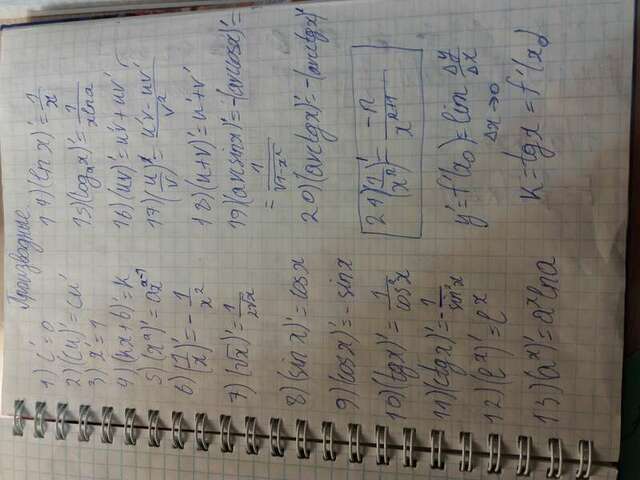 Производные.
1) C' = 0
2) (Cu)' = Cu'
3) x' = 1
4) (kx + b)' = k
5) (xᵃ)' = axᵃ⁻¹
6) (1/x)' = - 1/x²
7) (√x)' = 1/2√x
8) (sin x)' = cosx
9) (cosx)' = - sinx
10) (tgx)' = 1/cos²x
11) (ctgx)' = - 1/sin²x
12) (eˣ)' = eˣ
13) (aˣ)' = aˣlna
14) (ln x)' = 1/x
15) (logₐx)' = 1/xlna
16) (uv)' = u'v + uv'
17) (u/v)' = u'v - uv'/v²
18) (u+v)' = u' + v'
19) (arcsinx)' = -(arccosx)' =
= 1/√1-x²
20) (arctgx)' = -(arcctgx)'
21) (1/xⁿ)' = -n/xⁿ⁺¹
y' = f'(x₀) = lim Δy/Δx
Δx→0
K = tgx = f'(x₀)